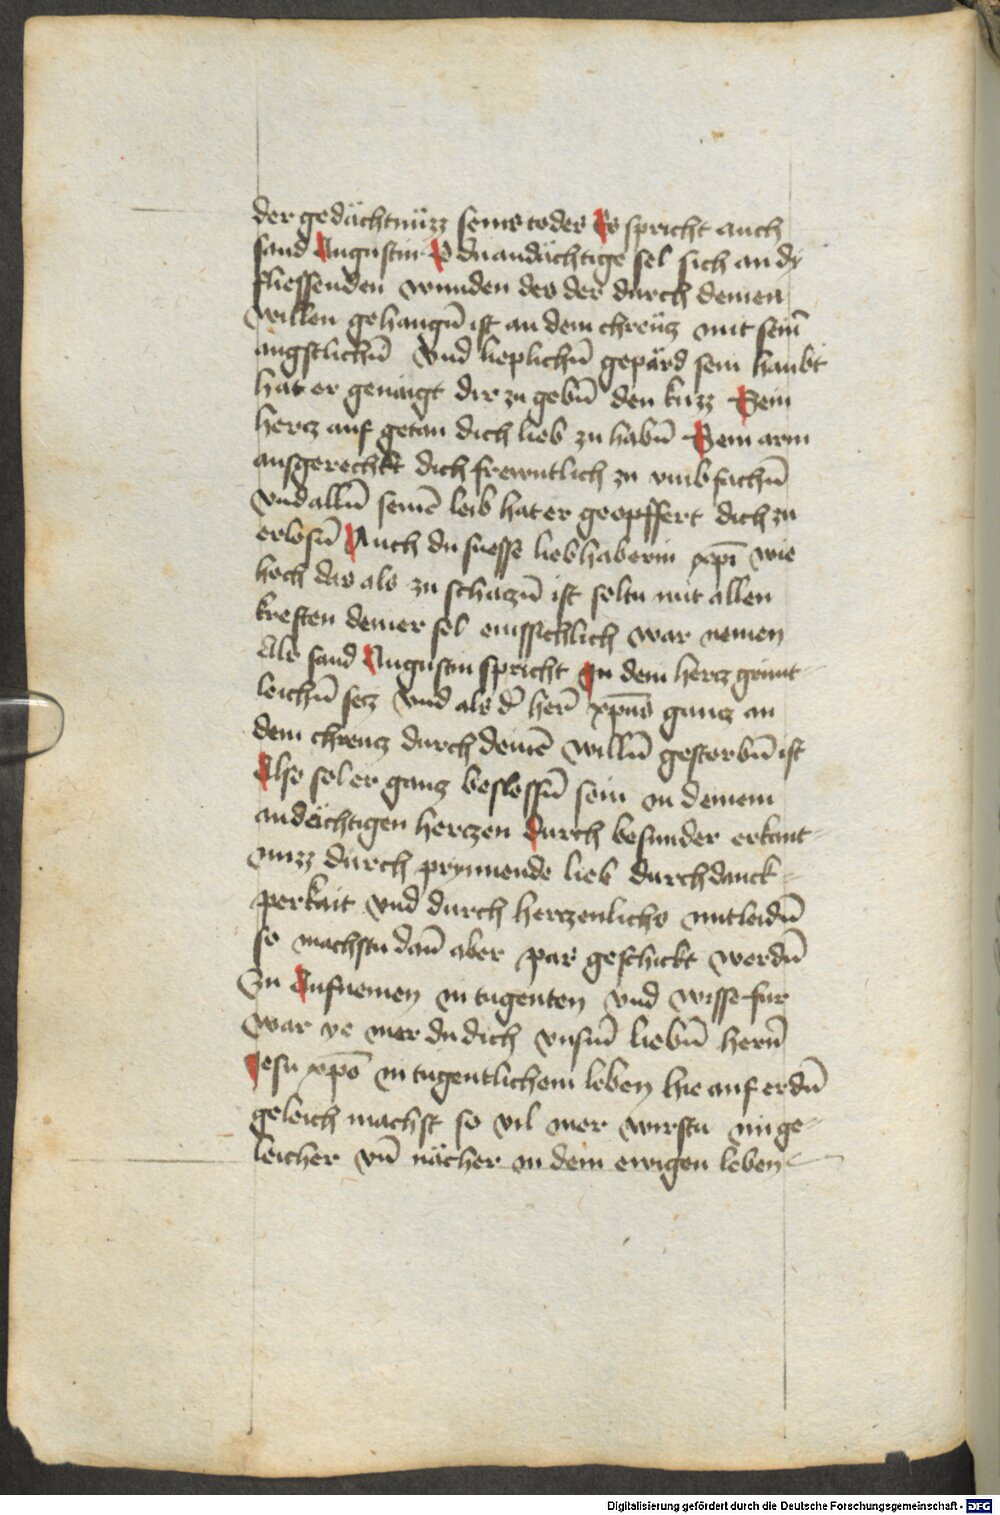 der gedächtnüzz seins todes Es spricht auch
sand Augustin O du andächtige sel sich an dy
fliessenden wunden des der durch deinen
willen gehangn̄ ist an dem chreücz mit sein̄
angstlichn̄ vnd lieplichn̄ gepärd sein haubt
hat er genaigt dir zu gebn̄ den kuzz Sein
hercz auf getan dich lieb zu habn̄ Sein arm
ausgerechkt dich frewntlich zu vmbfachn̄
vnd alln̄ seinē leib hat er geopffert dich zu
erlosn̄ Auch du suesse liebhaberin xp̄i wie
hoch das als zu schaczn̄ ist soltu mit allen
kreften deiner sel emssichlich war nemen
Als sand Augustin spricht In dem hercz
leichn̄ secz vnd als d̄ her̄ xp̄us gancz an
dem chreucz durch deinē willn̄ gestorbn̄ ist
Also sol er ganz beslossn̄ sein in deinem
andächtigen herczen durch besunder erkant-
nuzz durch prynnende lieb durch danck-
perkait vnd durch herczenlichs mitleidn̄
so machstu dan̄ aber pas geschickt werdn̄
Zu Aufnemen in tugenten vnd wisse fur
war ye mer du dich vnsm̄ liebn̄ hern̄
Jesu xp̄o in tugentlichem leben hie auf erdn̄
geleich machst so vil mer wirstu im ge-
leicher vn̄ nächer in dem ewigen leben
Digitalisierung gefördert durch die Deutsche Forschungsgemeinschaft - DFG